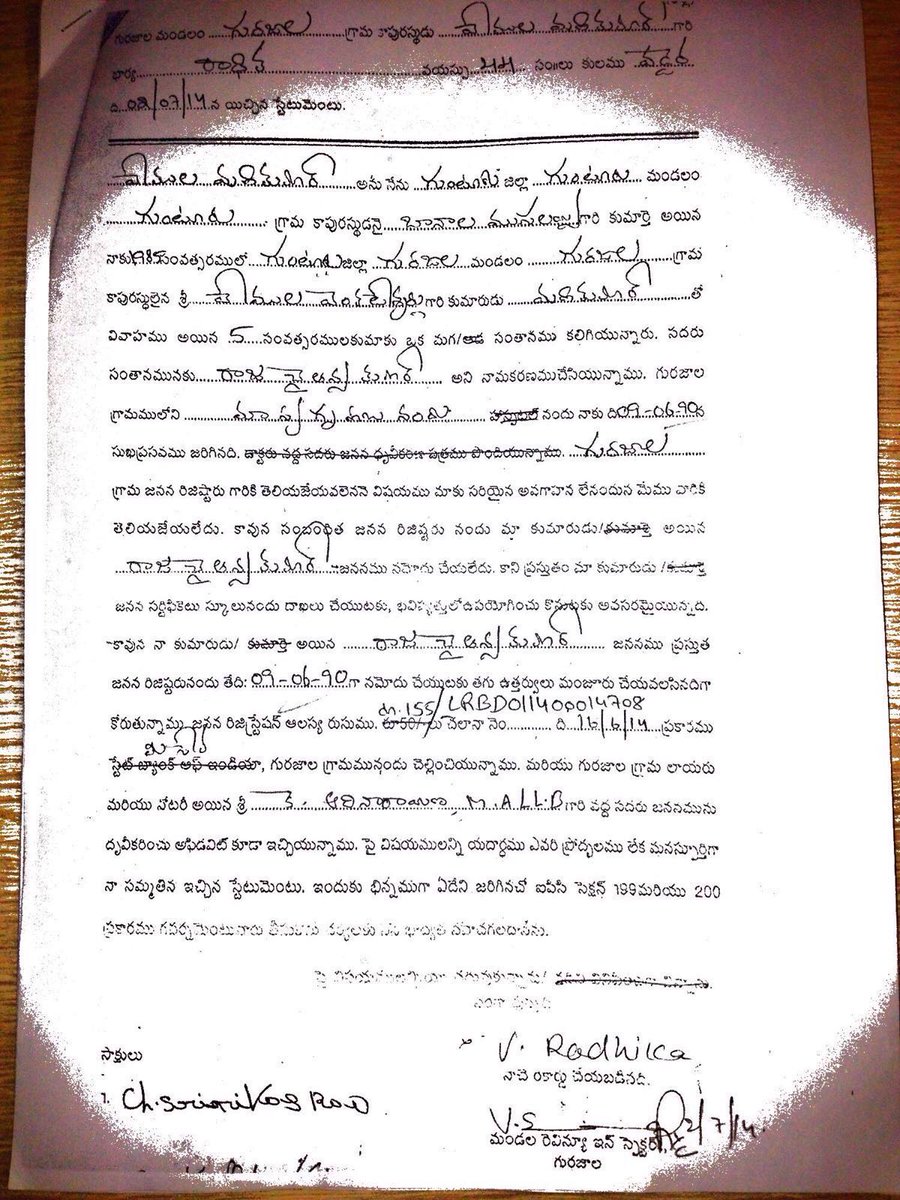 గురజాల మండలం గురజాల గ్రామ కాపురస్థుడు వేముల గారి
భార్య రాధిక వయస్సు 44 సం॥లు కులము
ది 02/07/14 న యిచ్చిన స్టేటుమెంటు.
వేముల అను నేను గుంటూరు జిల్లా గుంటూరు మండలం
గుంటూరు గ్రామ కాపురస్థుడనై బాణాల గారి కుమార్తె అయిన
నాకు సంవత్సరములో గుంటూరు జిల్లా గురజాల మండలం గురజాల గ్రామ
కాపురస్థులైన శ్రీ వేముల వెంకటేశ్వర్లు గారి కుమారుడు తో
వివాహము అయిన 5 సంవత్సరములకుమాకు ఒక మగ/ఆడ సంతానము కలిగియున్నారు. సదరు
సంతానమునకు రాజ అని నామకరణముచేసియున్నాము. గురజాల
గ్రామములోని మా స్వగృహము నందు హాస్పటల్ నందు నాకు ది 09-06-90 న
సుఖప్రసవము జరిగినది. డాక్టరు వద్ద సదరు జనన ధృవీకరణ పత్రము పొందియున్నాము. గురజాల
గ్రామ జనన రిజిష్టారు గారికి తెలియజేయవలెననె విషయము మాకు సరియైన అవగాహన లేనందున మేము వారికి
తెలియజేయలేదు. కావున సంబంధిత జనన రిజిష్టరు నందు మా కుమారుడు/కుమార్తె అయిన
రాజ జననము నమోదు చేయలేదు. కాని ప్రస్తుతం మా కుమారుడు /కుమార్తె
జనన సర్టిఫికెటు స్కూలునందు దాఖలు చేయుటకు, భవిష్యత్తులోఉపయోగించు కొనుటకు అవసరమైయున్నది.
కావున నా కుమారుడు/ కుమార్తె అయిన రాజ జననము ప్రస్తుత
జనన రిజిష్టరునందు తేది: 09-06-90 గా నమోదు చేయుటకు తగు ఉత్తర్వులు మంజూరు చేయవలసినదిగా
155/ LRBD011400014708
కోరుతున్నాము. జనన రిజిస్ట్రేషన్ ఆలస్య రుసుము. రూ50/-లు చెలానా నెం ది 16/6/14 ప్రకారము
మీ సేవ
స్టేట్ బ్యాంక్ ఆఫ్ ఇండియా, గురజాల గ్రామమునందు చెల్లించియున్నాము. మరియు గురజాల గ్రామ లాయరు
మరియు నోటరీ అయిన శ్రీ కె. ఆదినారాయణ, M.A LL.B గారి వద్ద సదరు జననమును
దృవీకరించు అఫిడవిట్ కూడా ఇచ్చియున్నాము. పై విషయములన్ని యదార్థము ఎవరి ప్రోద్బలము లేక మనస్ఫూర్తిగా
నా సమ్మతిన ఇచ్చిన స్టేటుమెంటు. ఇందుకు భిన్నముగా ఏదేని జరిగినచో ఐపిసి సెక్షన్ 199మరియు 200
ప్రకారము గవర్నమెంటువారు తీసుకును చర్యలకు నేను బాధ్యత వహించగలదానను.
V. Radhika
సాక్షులు
నాచే రికార్డు చేయబడినది.
1. Ch. Srinivas Rao
V.S 2/7/14.
మండల రెవిన్యూ ఇన్ స్పెక్టర్,
గురజాల